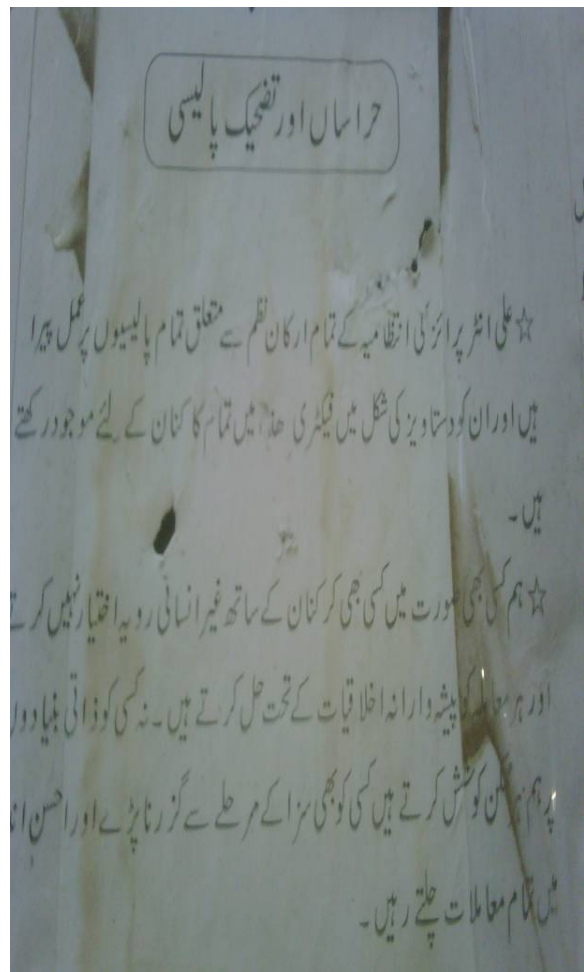 حراساں اور تضحیک پالیسی
☆ علی انٹر پرائز کی انتظامیہ کے تمام ارکان نظم سے متعلق تمام پالیسیوں پر عمل پیرا
ہیں اور ان کو دستاویز کی شکل میں فیکٹری ھذا میں تمام کا کنان کے لئے موجود رکھتے
ہیں۔
☆ ہم کسی بھی صورت میں کسی بھی کرکنان کے ساتھ غیر انسانی رویہ اختیار نہیں کرتے
اور ہر معاملہ کو پیشہ وارانہ اخلاقیات کے تحت حل کرتے ہیں۔ نہ کسی کو ذاتی بنیادوں
پر ہم کوشش کرتے ہیں کسی کو بھی سزا کے مرحلے سے گزرنا پڑے اور احسن
میں تمام معاملات چلتے رہیں۔